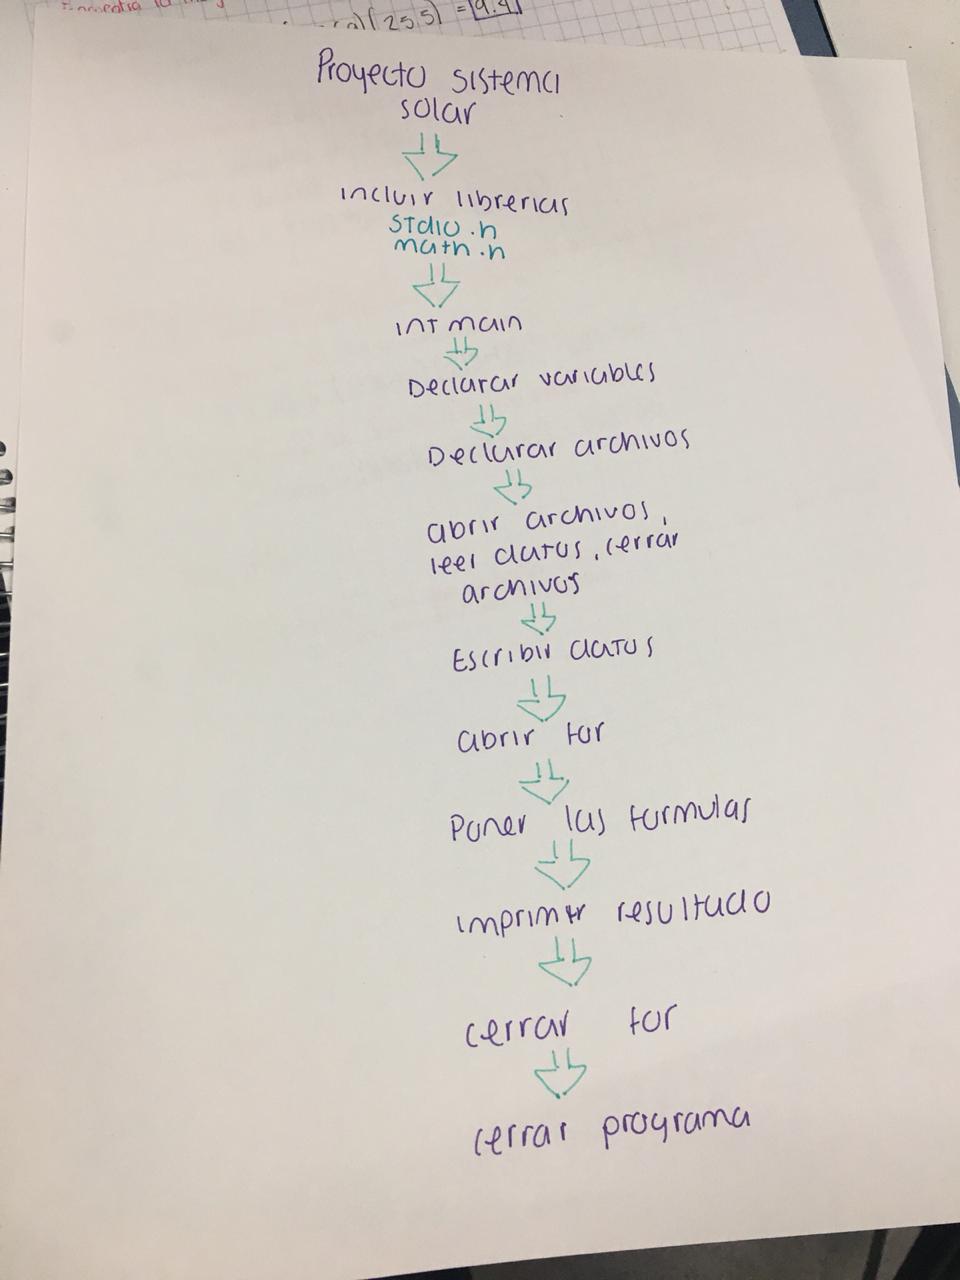 (25.5) = 9.4
Proyecto sistema
solar
incluir librerias
stdio.h
math.h
int main
Declarar variables
Declarar archivos
abrir archivos,
leer datos, cerrar
archivos
Escribir datos
abrir for
Poner las formulas
imprimir resultado
cerrar for
cerrar programa